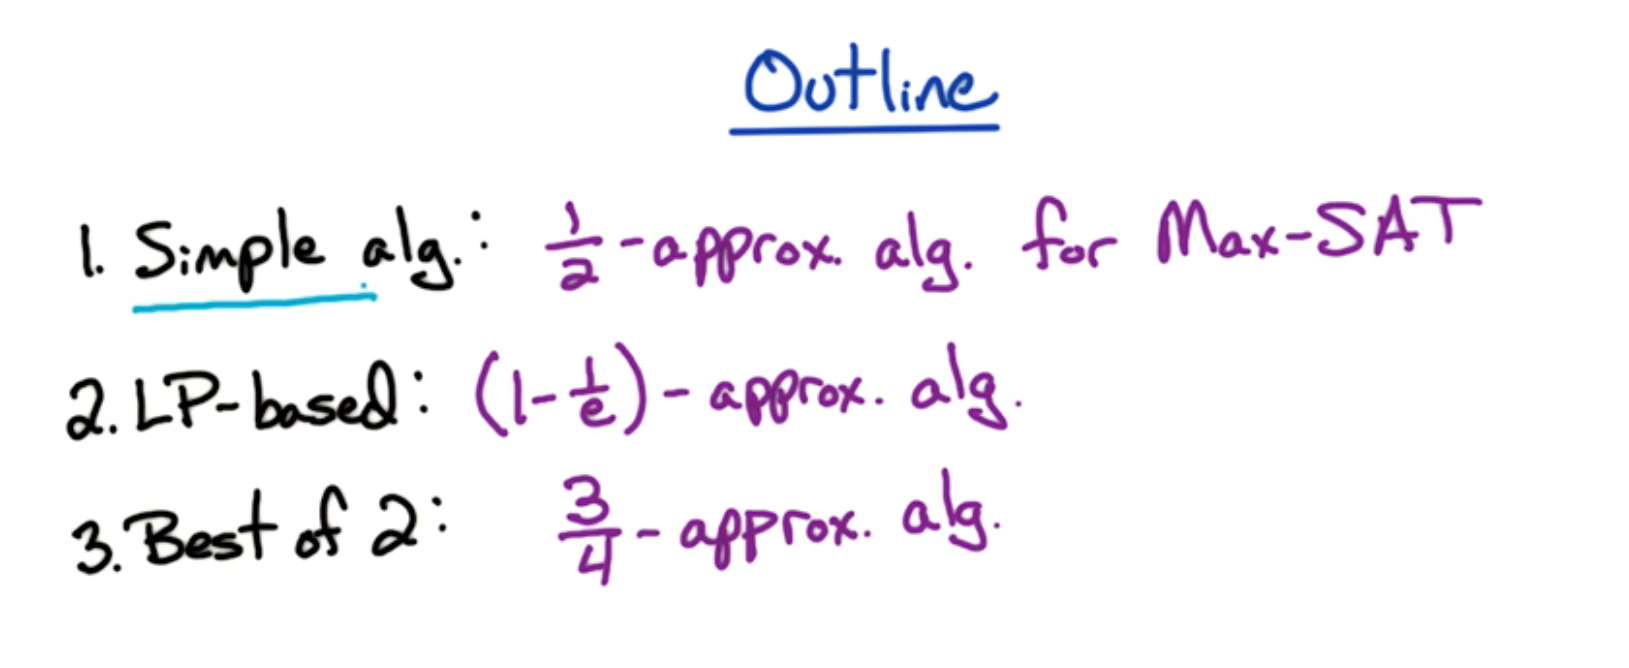 Outline
1. Simple alg.: 1/2 - approx. alg. for Max-SAT
2. LP-based: (1 - 1/e) - approx. alg.
3. Best of 2: 3/4 - approx. alg.